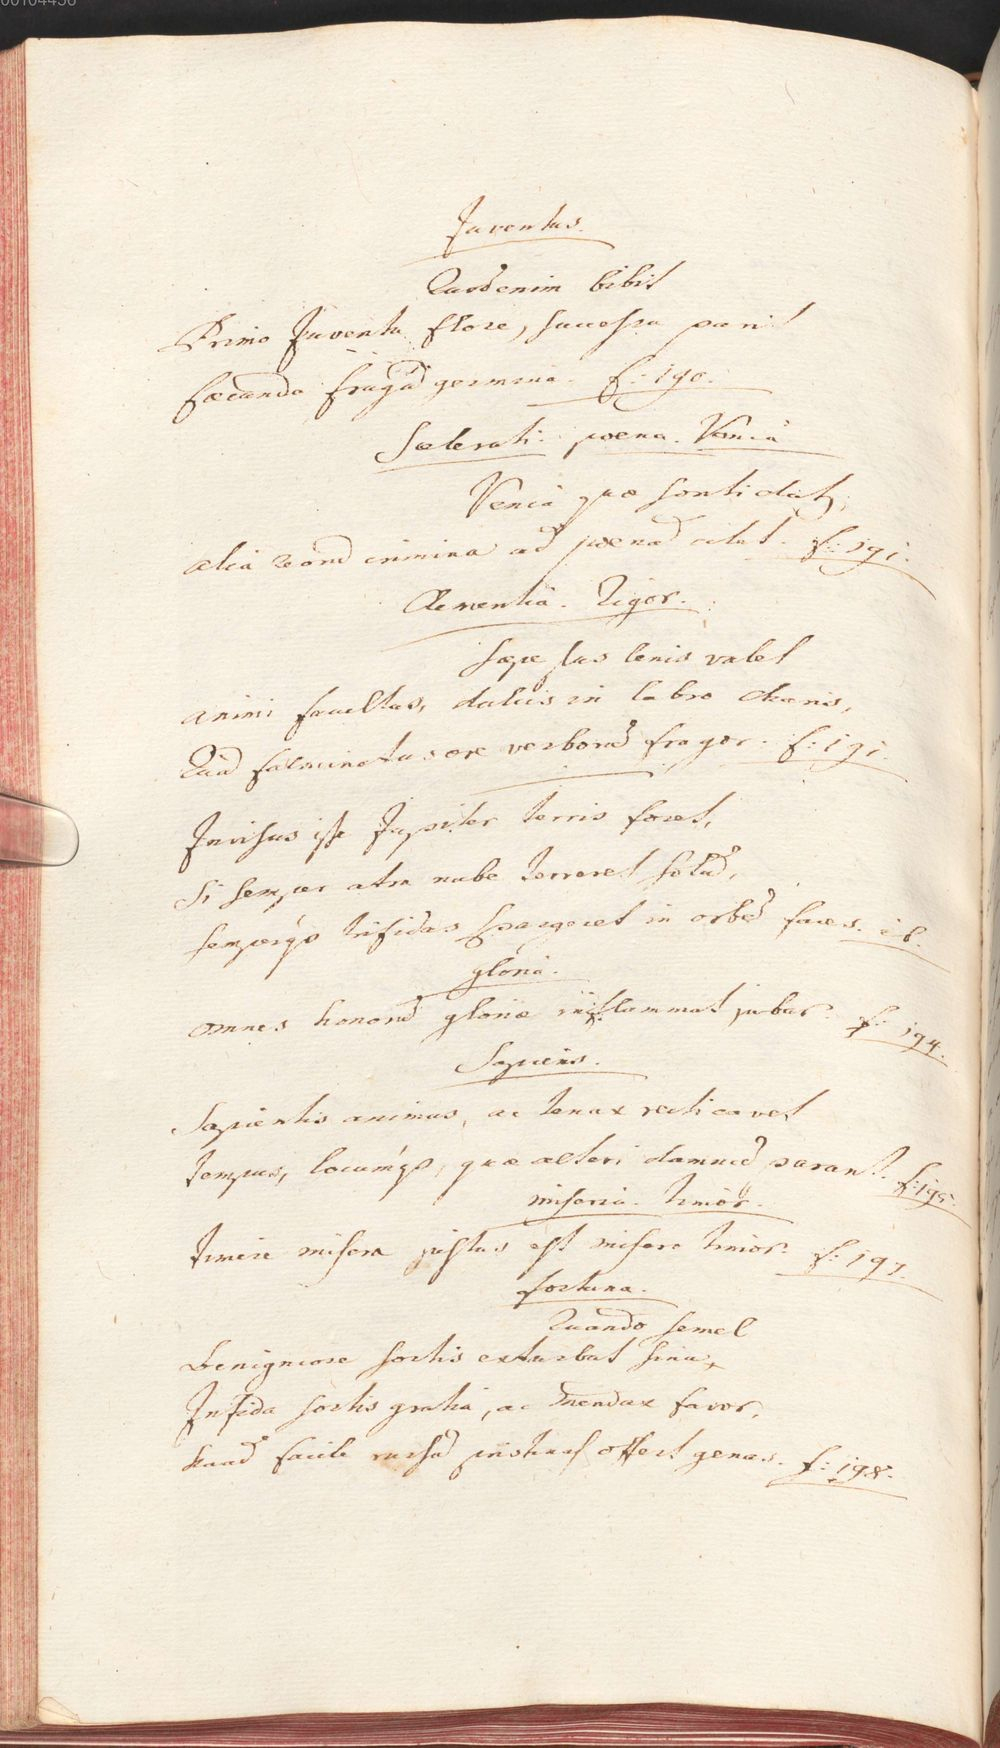 Juventus.
Quod enim bibit
Primo Juventa flore, successu parit
fœcunda frugũ germina. f: 190.
Scelerati. pœna. Venia
Venia quæ sonti datʒ,
alia reorũ crimina ad pœnã citat. f: 191.
Clementia. Rigor.
Sæpe plus lenis valet
animi facultas, dulcis in labro Charis,
Quã fulminatus ore verborũ fragor. f: 191.
Invisus ipse Jupiter terris foret,
Si semper atra nube terreret solũ,
semperqꝫ trifidas spargeret in orbẽ faces. ib.
gloria.
omnes honorũ gloriæ inflammat jubar. f: 194.
Sapiens.
Sapientis animus, ac tenax recti cavet
tempus, locumqꝫ, quæ alteri damnũ parant. f: 195.
miseria. timor.
timere misera justus est misero timor. f: 197.
fortuna.
Quando semel
benigniore sortis exturbat sinu,
Infida sortis gratia, ac mendax favor,
haud facile rursũ offert genas. f: 198.